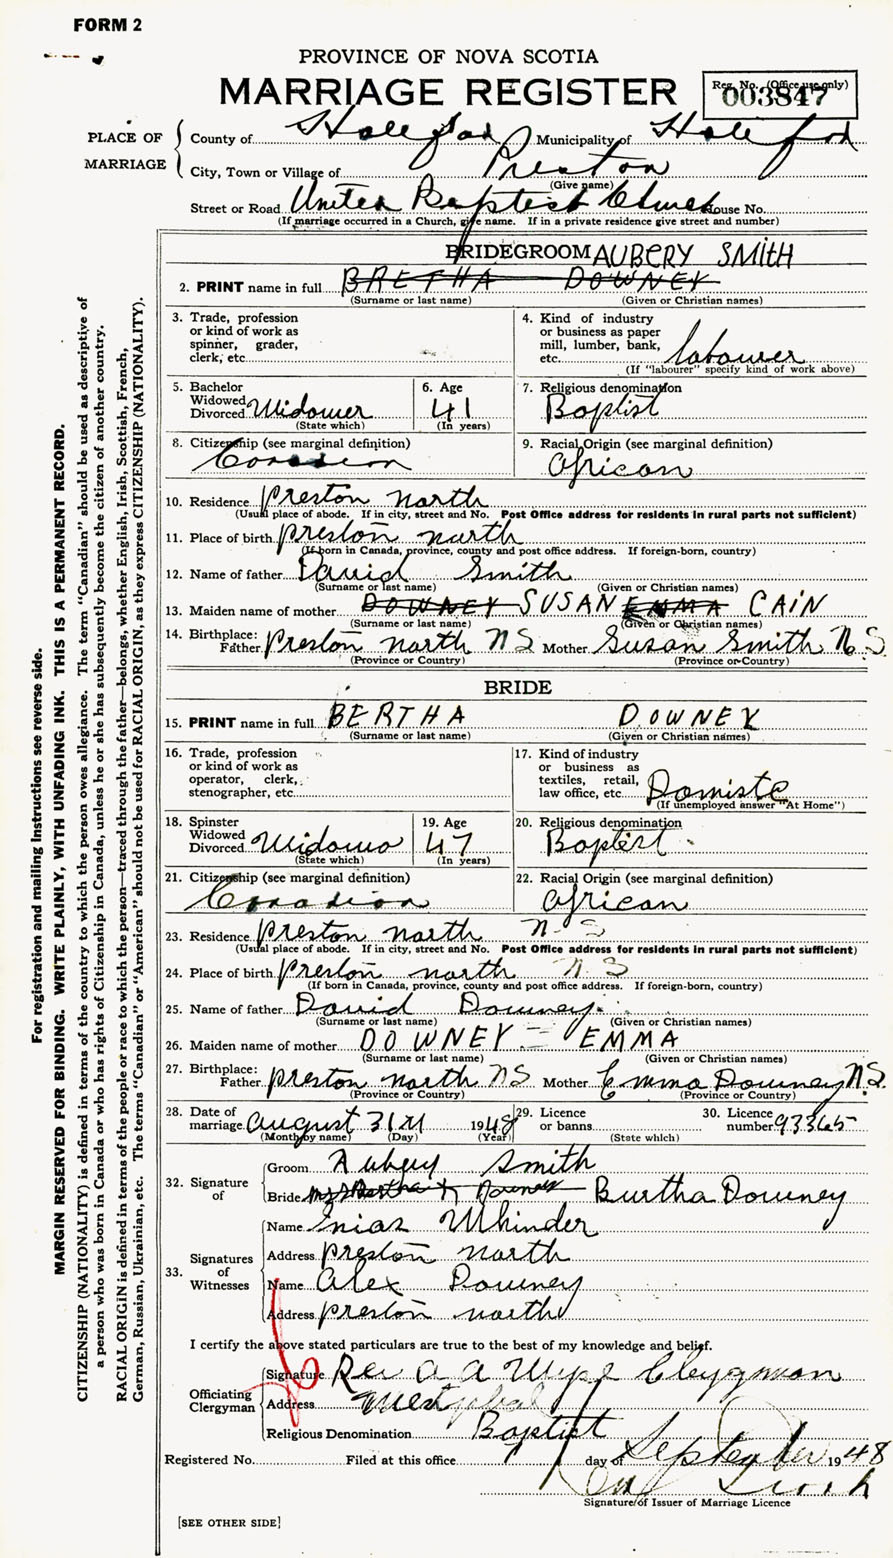 FORM 2
PROVINCE OF NOVA SCOTIA
MARRIAGE REGISTER
Reg. No. (Office use only)
003847
PLACE OF MARRIAGE
County of Municipality of
City, Town or Village of Preston
(Give name)
Street or Road United Baptist Church House No.
(If marriage occurred in a Church, give name. If in a private residence give street and number)
BRIDEGROOM AUBERY SMITH
2. PRINT name in full BRETHA DOWNEY
(Surname or last name) (Given or Christian names)
3. Trade, profession or kind of work as spinner, grader, clerk, etc.
4. Kind of industry or business as paper mill, lumber, bank, etc. labourer
(If "labourer" specify kind of work above)
5. Bachelor Widowed Divorced Widower
(State which)
6. Age 41
(In years)
7. Religious denomination
Baptist
8. Citizenship (see marginal definition)
9. Racial Origin (see marginal definition)
African
10. Residence Preston north
(Usual place of abode. If in city, street and No. Post Office address for residents in rural parts not sufficient)
11. Place of birth preston north
(If born in Canada, province, county and post office address. If foreign-born, country)
12. Name of father David Smith
(Surname or last name) (Given or Christian names)
13. Maiden name of mother DOWNEY SUSAN EMMA CAIN
(Surname or last name) (Given or Christian names)
14. Birthplace: Father preston north NS Mother Susan Smith N.S.
(Province or Country) (Province or Country)
BRIDE
15. PRINT name in full BERTHA DOWNEY
(Surname or last name) (Given or Christian names)
16. Trade, profession or kind of work as operator, clerk, stenographer, etc.
17. Kind of industry or business as textiles, retail, law office, etc. Domiste
(If unemployed answer "At Home")
18. Spinster Widowed Divorced Widowo
(State which)
19. Age 47
(In years)
20. Religious denomination
Baptist
21. Citizenship (see marginal definition)
Canadian
22. Racial Origin (see marginal definition)
African
23. Residence preston north N-S
(Usual place of abode. If in city, street and No. Post Office address for residents in rural parts not sufficient)
24. Place of birth preston north N S
(If born in Canada, province, county and post office address. If foreign-born, country)
25. Name of father David Downey
(Surname or last name) (Given or Christian names)
26. Maiden name of mother DOWNEY - EMMA
(Surname or last name) (Given or Christian names)
27. Birthplace: Father preston north NS Mother Emma Downey N.S.
(Province or Country) (Province or Country)
28. Date of marriage August 31 1948
(Month by name) (Day) (Year)
29. Licence or banns
(State which)
30. Licence number 93365
32. Signature of
Groom Aubery Smith
Bride Mrs Bertha Downey Burtha Downey
33. Signatures of Witnesses
Name
Address preston north
Name Alex Downey
Address preston north
I certify the above stated particulars are true to the best of my knowledge and belief.
Officiating Clergyman
Signature Rev a a Wyse Clergyman
Address Westphal
Religious Denomination Baptist
Registered No. Filed at this office day of September 1948
Signature of Issuer of Marriage Licence
[SEE OTHER SIDE]
For registration and mailing instructions see reverse side.
MARGIN RESERVED FOR BINDING. WRITE PLAINLY, WITH UNFADING INK. THIS IS A PERMANENT RECORD.
CITIZENSHIP (NATIONALITY) is defined in terms of the country to which the person owes allegiance. The term "Canadian" should be used as descriptive of
a person who was born in Canada or who has rights of Citizenship in Canada, unless he or she has subsequently become the citizen of another country.
RACIAL ORIGIN is defined in terms of the people or race to which the person—traced through the father—belongs, whether English, Irish, Scottish, French,
German, Russian, Ukrainian, etc. The terms "Canadian" or "American" should not be used for RACIAL ORIGIN, as they express CITIZENSHIP (NATIONALITY).